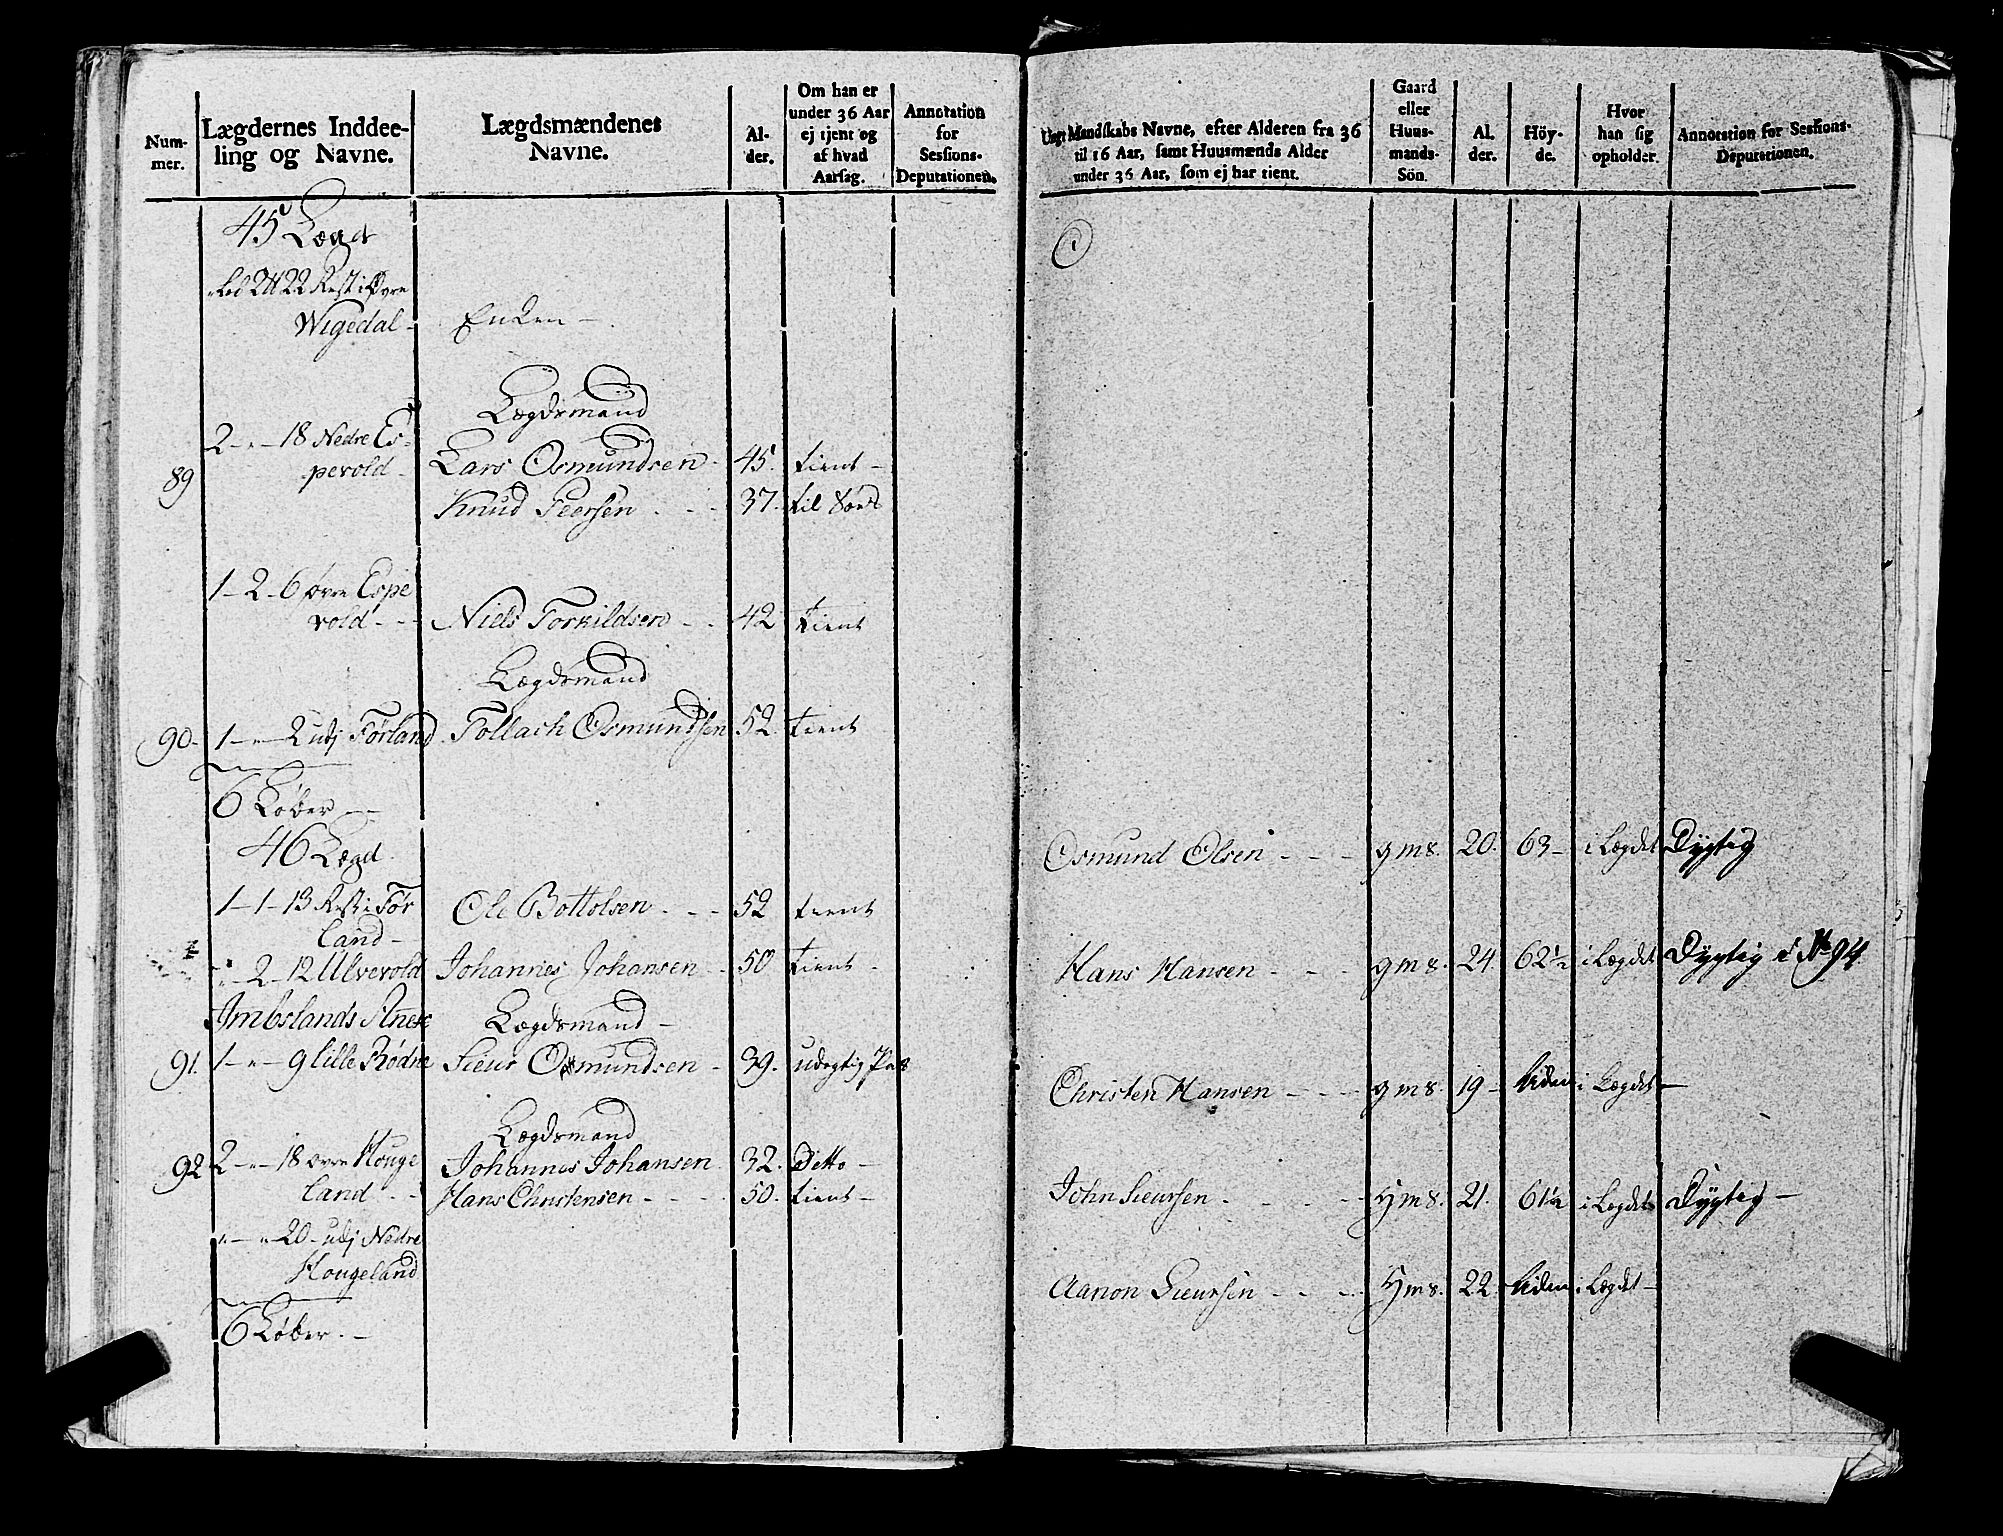 Num-
mer.
Lægdernes Inddee-
ling og Navne.
Lægdsmændenes
Navne.
Al-
der.
Om han er
under 36 Aar
ej tjent og
af hvad
Aarsag.
Annotation
for
Sessions-
Deputationen.
45 Lægd
2 22 Rest i Øvre
Wigedal - Enken -
Lægdsmand
2 - " - 18 Nedre Es-
89 perold - Lars Osmundsen - 45. tient -
Knud Peersen . - - 37. til
1 - 2 - 6 øvre Espe
rold - - - Niels Torkildsen - - 42 tient
Lægdsmand
90. 1 - " - 2 udj Førland Tollach Osmundsen 52. tient
6 Løber -
46 Lægd.
1 - 1 - 13 Rest i Før
land - Ole Bottolsen . - - 52 tient
" - 2 - 12 Ulverold Johannes Johansen - 50 tient -
Imbslands Anex Lægdsmand -
91. 1 - " - 9 Lille Rødne Sieur Osmundsen - 39. udygtig Pas
Lægdsmand
92 2 - " - 18 øvre Houge Johannes Johansen 32. Ditto -
land - - Hans Christensen - - - - 50. tient -
" - " 20 - udj Nedre
Hougeland
6 Løber. -
Ungt Mandskabs Navne, efter Alderen fra 36
til 16 Aar, samt Huusmænds Alder
under 36 Aar, som ej har tient.
Gaard
eller
Huus-
mands-
Sön.
Al-
der.
Höy-
de.
Hvor
han sig
opholder.
Annotation for Sessions-
Deputationen.
Osmund Olsen - - - gms. 20. 63 - i Lægdet Dygtig
Hans Hansen - - - gms. 24 62½ i Lægdet Dygtig i No 94
Christen Hansen - - - gms. 19 - liden i Lægdet -
John Sieursen - - - Hms. 21. 61½ i Lægdet Dygtig -
Aanon Sieursen - - - Hms. 22 - liden i Lægdet -